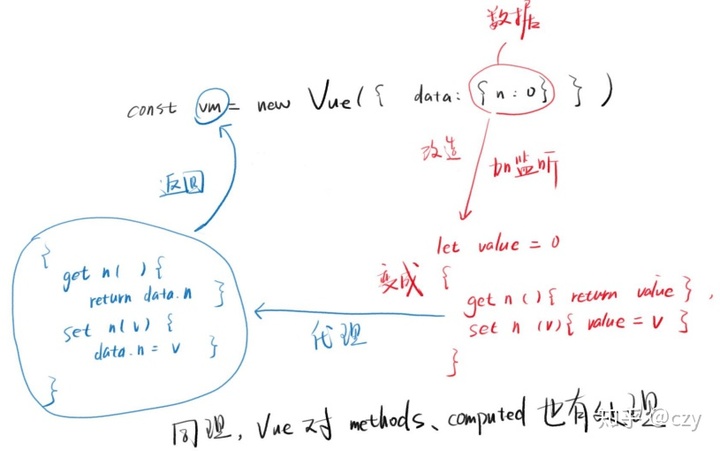 数据
const vm = new Vue({ data: {n:0} })
改造
加监听
返回
let value = 0
变成
{
get n(){ return value },
set n(v){ value = v }
}
代理
{
get n( ){
return data.n
}
set n(v){
data.n = v
}
}
同理, Vue 对 methods、computed 也有代理
知乎 @czy